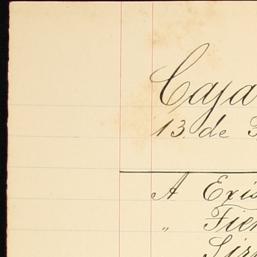 Caja
13 de
A Exis
" Fier